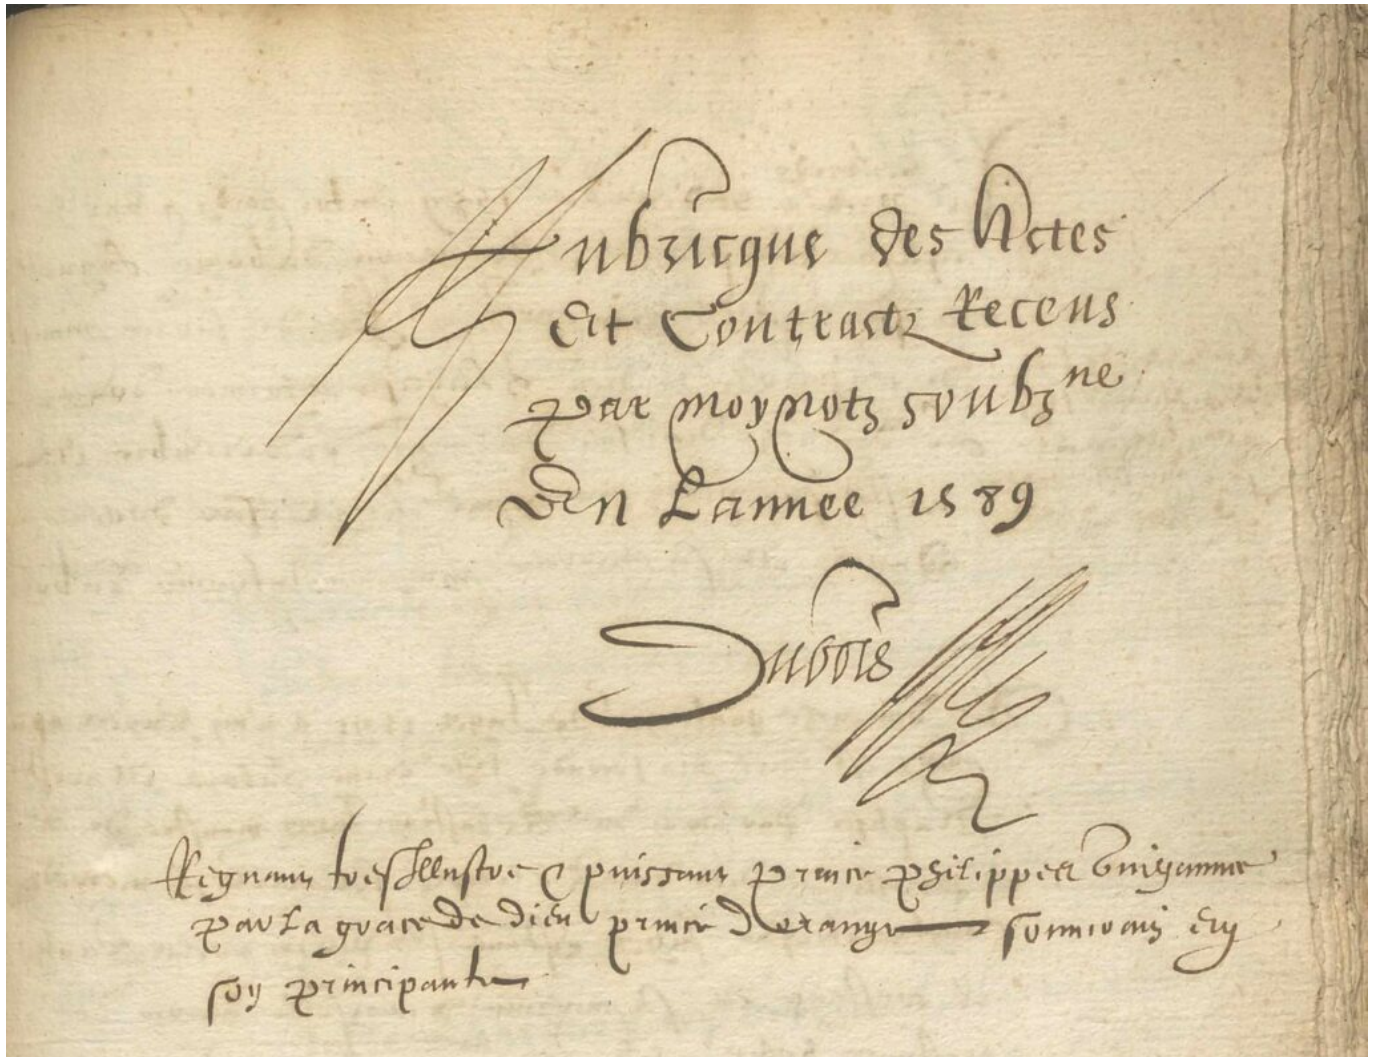 Rubricque des Actes
Et Contractz Receus
par moy notz soubzne
En Lannee 1589
Dubois
Regnant tresIllustre & puissant prince Philippes Guigaume
par La grace de dieu prince d orange souuerain en
soy principaute